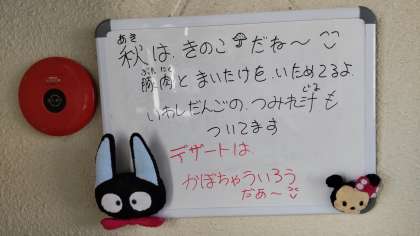 あき
秋は、きのこ☂だね〜
ぶた にく
豚肉と まいたけを、いためてるよ、
じる
いわしだんごの、つみれ汁も
ついてます
デザートは、
かぼちゃういろう
だぁ〜